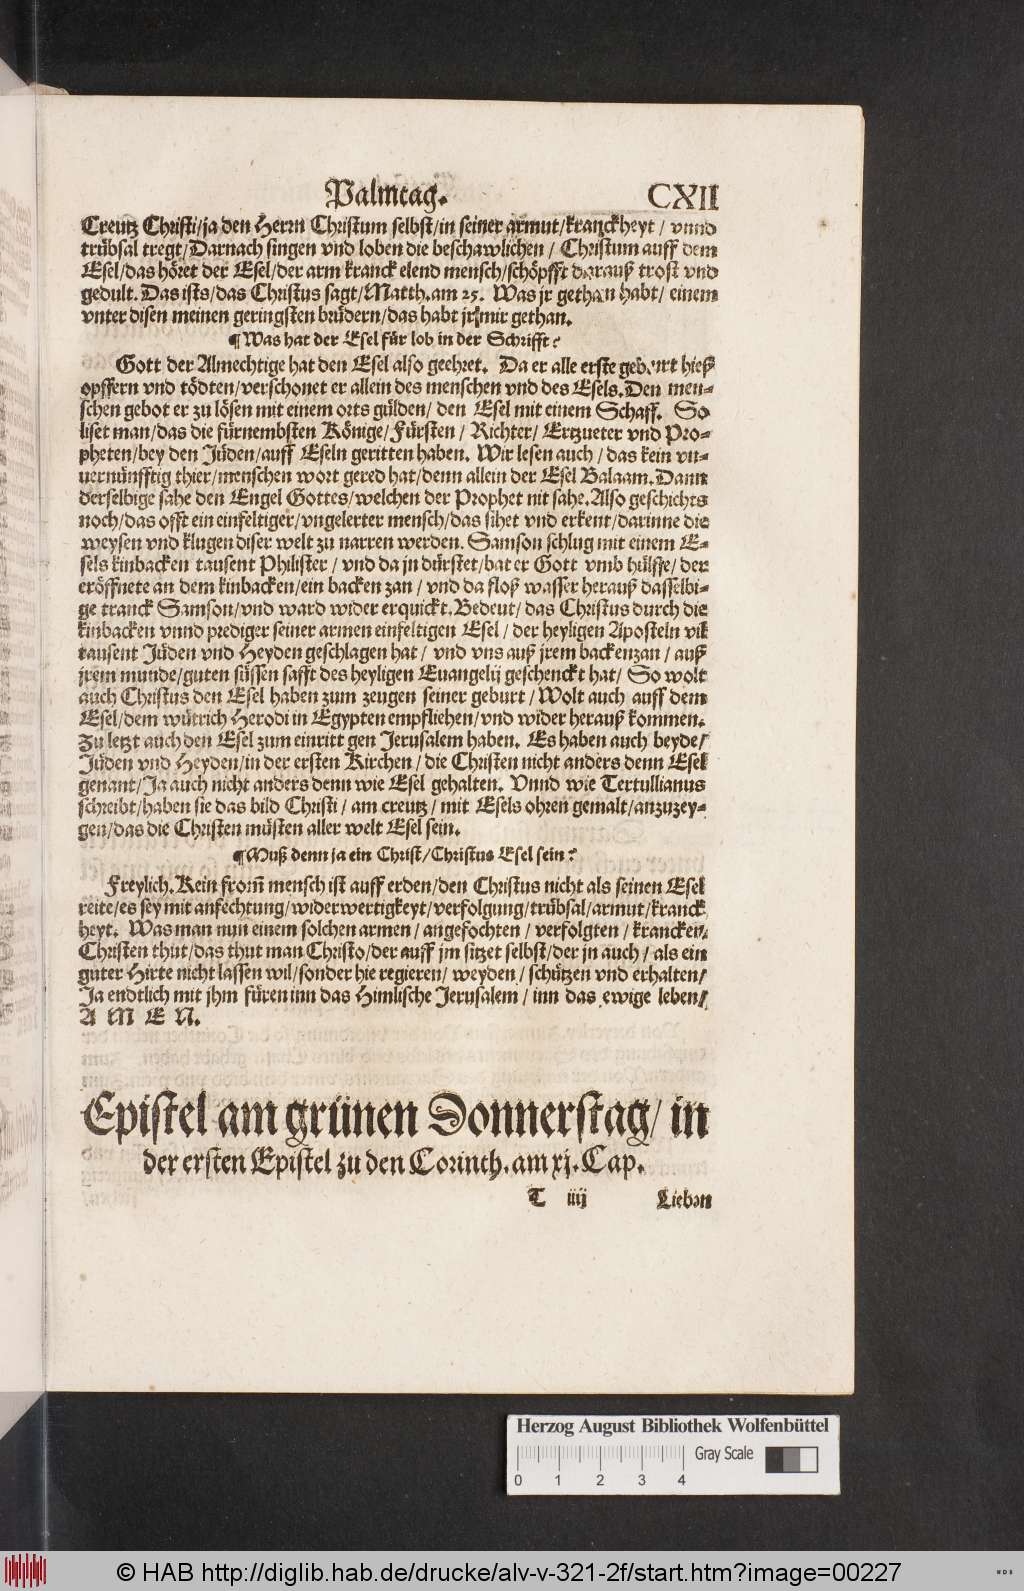 Palmtag. CXII
Creutz Christi/ja den Herrn Christum selbst/in seiner armut/kranckheyt / vnnd
trübsal tregt/Darnach singen vnd loben die beschawlichen / Christum auff dem
Esel/das höret der Esel/der arm kranck elend mensch/schöpfft darauß trost vnd
gedult. Das ists/das Christus sagt/Matth.am 25. Was jr gethan habt/ einem
vnter disen meinen geringsten brüdern/das habt jr mir gethan.
¶ Was hat der Esel für lob in der Schrifft?
Gott der Almechtige hat den Esel also geehret. Da er alle erste geburt hieß
opffern vnd tödten/verschonet er allein des menschen vnd des Esels. Den men-
schen gebot er zu lösen mit einem orts gülden/ den Esel mit einem Schaff. So
liset man/das die fürnembsten Könige/Fürsten / Richter/ Ertzueter vnd Pro-
pheten/bey den Jüden/auff Eseln geritten haben. Wir lesen auch / das kein vn-
uernünfftig thier/menschen wort gered hat/denn allein der Esel Balaam. Dann
derselbige sahe den Engel Gottes/welchen der Prophet nit sahe. Also geschichts
noch/das offt ein einfeltiger/vngelerter mensch/das sihet vnd erkent/darinne die
weysen vnd klugen diser welt zu narren werden. Samson schlug mit einem E-
sels kinbacken tausent Philister / vnd da jn dürstet/bat er Gott vmb hülffe/ der
eröffnete an dem kinbacken/ein backen zan / vnd da floß wasser herauß dasselbi-
ge tranck Samson/vnd ward wider erquickt. Bedeut/ das Christus durch die
kinbacken vnnd prediger seiner armen einfeltigen Esel / der heyligen Aposteln vil
tausent Jüden vnd Heyden geschlagen hat / vnd vns auß jrem backenzan / auß
jrem munde/guten süssen safft des heyligen Euangelij geschenckt hat/ So wolt
auch Christus den Esel haben zum zeugen seiner geburt / Wolt auch auff dem
Esel/dem wütrich Herodi in Egypten empfliehen/vnd wider herauß kommen.
Zu letzt auch den Esel zum einritt gen Jerusalem haben. Es haben auch beyde/
Jüden vnd Heyden/in der ersten Kirchen / die Christen nicht anders denn Esel
genant/Ja auch nicht anders denn wie Esel gehalten. Vnnd wie Tertullianus
schreibt/haben sie das bild Christi / am creutz / mit Esels ohren gemalt/anzuzey-
gen/das die Christen müsten aller welt Esel sein.
¶ Muß denn ja ein Christ/Christus Esel sein?
Freylich. Kein from̃ mensch ist auff erden/den Christus nicht als seinen Esel
reite/es sey mit anfechtung/widerwertigkeyt/verfolgung/trübsal/armut/kranck
heyt. Was man nun einem solchen armen / angefochten / verfolgten / krancken
Christen thut/das thut man Christo/der auff jm sitzet selbst/der jn auch / als ein
guter Hirte nicht lassen wil/sonder hie regieren/ weyden / schützen vnd erhalten/
Ja endtlich mit jhm füren inn das Himlische Jerusalem / inn das ewige leben/
A M E N.
Epistel am grünen Donnerstag/ in
der ersten Epistel zu den Corinth. am xj. Cap.
T iiij Lieben
Herzog August Bibliothek Wolfenbüttel
Gray Scale
0 1 2 3 4
© HAB http://diglib.hab.de/drucke/alv-v-321-2f/start.htm?image=00227